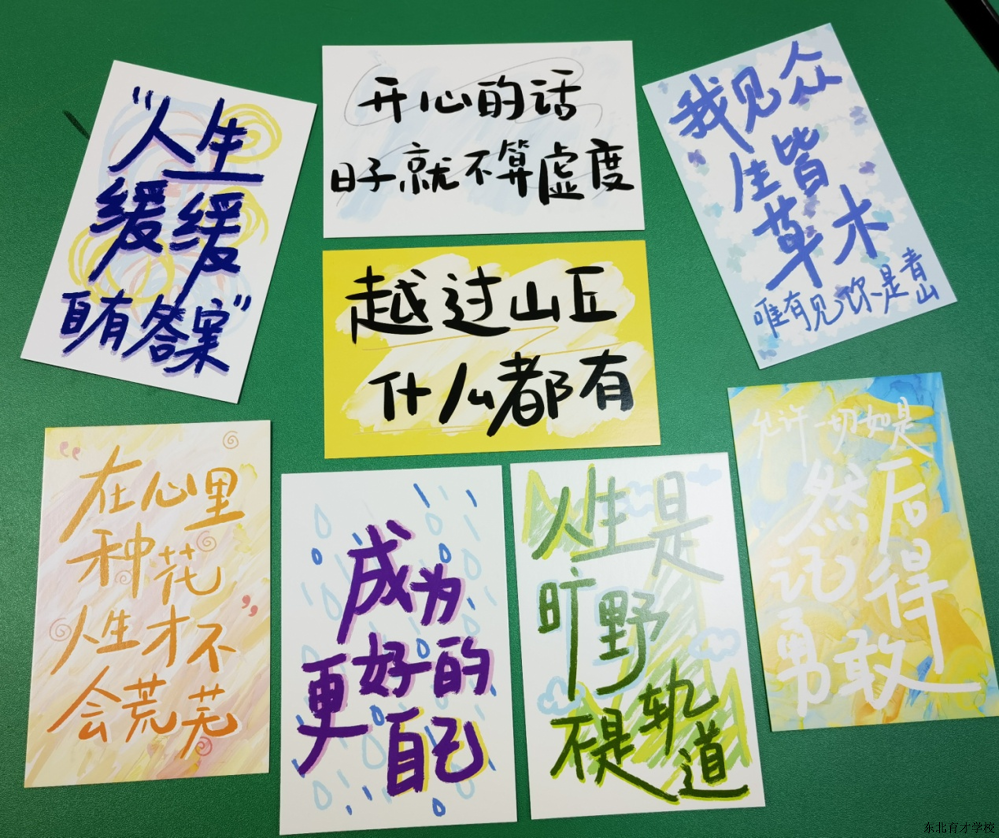 “人生
缓缓
自有答案”
开心的话
日子就不算虚度
我见众
生皆
草木
唯有见你是青
山
越过山丘
什么都有
“在心里
种花
人生才不”
会荒芜
成为
更好的
自己
人生是
旷野
不是轨
道
允许一切如是
然后
记得
勇敢
东北育才学校